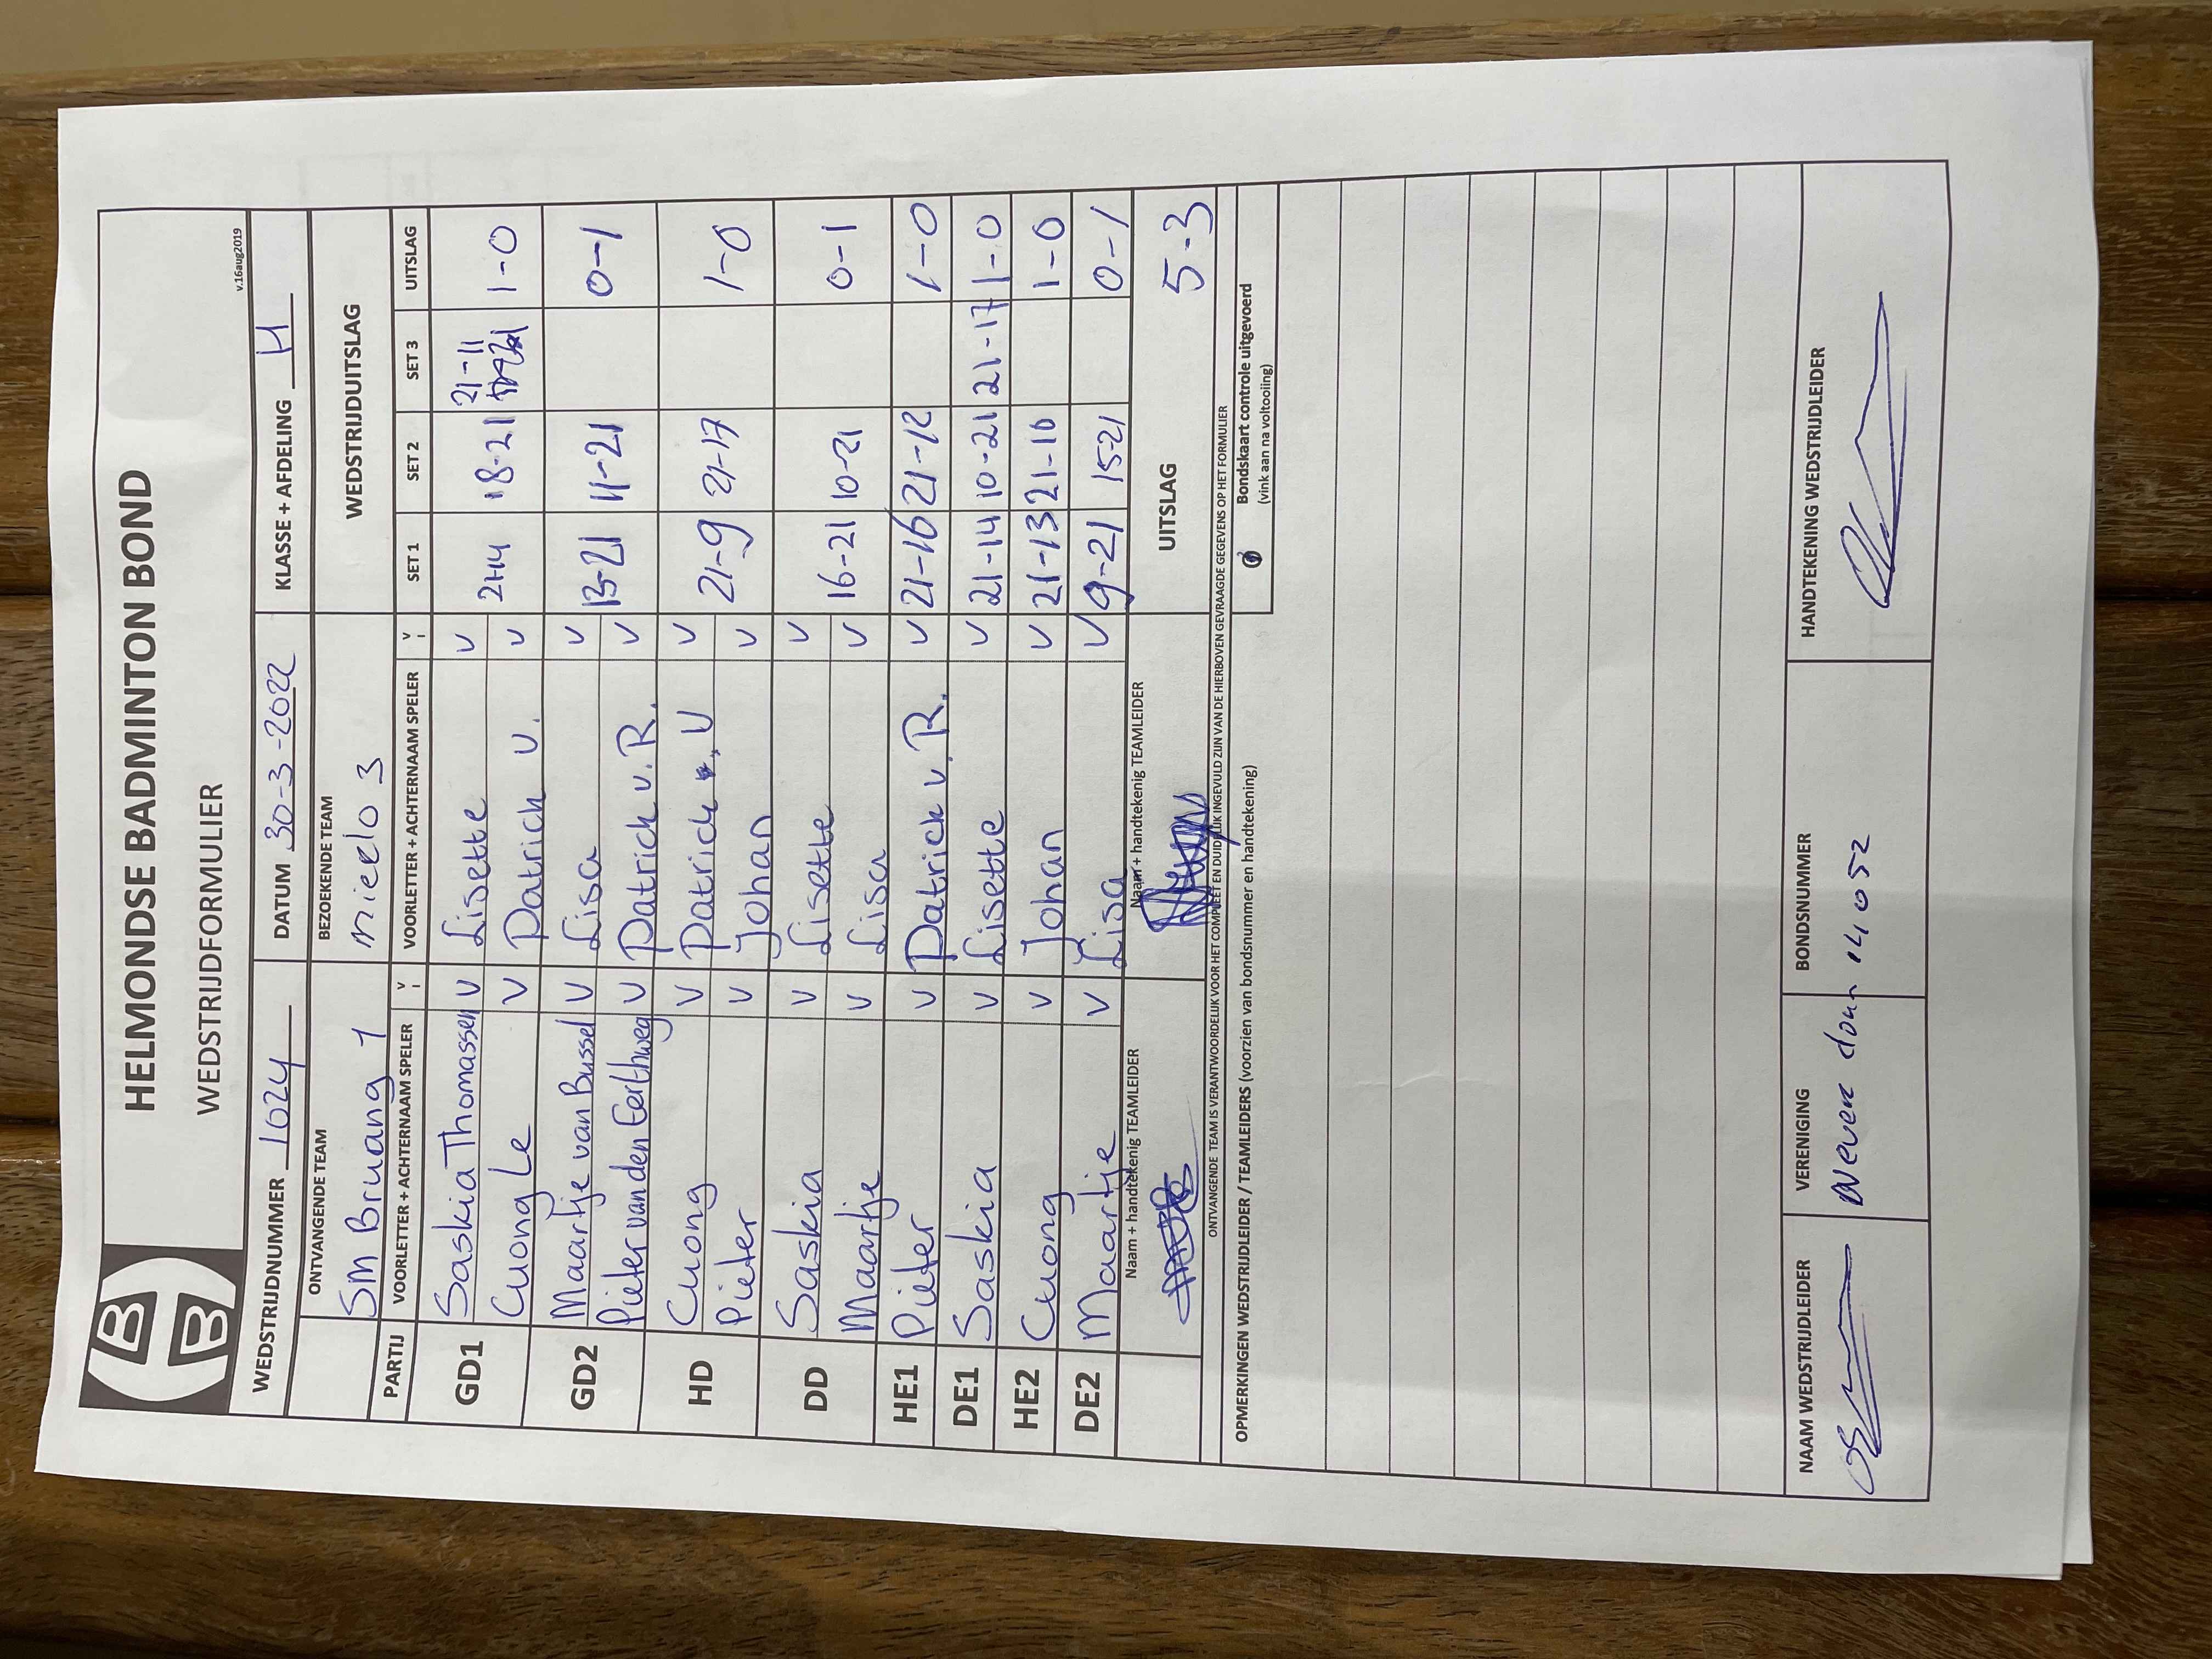 HELMONDSE BADMINTON BOND
WEDSTRIJDFORMULIER
v.16aug2019
WEDSTRIJDNUMMER 1024 DATUM 30-3-2022 KLASSE + AFDELING H
ONTVANGENDE TEAM BEZOEKENDE TEAM WEDSTRIJDUITSLAG
SM Bruang 1 mielo 3
PARTIJ VOORLETTER + ACHTERNAAM SPELER V VOORLETTER + ACHTERNAAM SPELER V SET 1 SET 2 SET 3 UITSLAG
GD1 Saskia Thomassen V Lisette V 21-14 18-21 21-11 1-0
Cuong Le V Patrick V. V
GD2 Maartje van Bussel V Lisa V 13-21 11-21 0-1
Pieter van den Eerthweg V Patrick v. R. V
HD Cuong V Patrick V V 21-9 21-17 1-0
Pieter V Johan V
DD Saskia V Lisette V 16-21 10-21 0-1
Maartje V Lisa V
HE1 Pieter V Patrick v. R. V 21-16 21-12 1-0
DE1 Saskia V Lisette V 21-14 10-21 21-17 1-0
HE2 Cuong V Johan V 21-13 21-10 1-0
DE2 Maartje V Lisa V 9-21 15-21 0-1
Naam + handtekenig TEAMLEIDER Naam + handtekenig TEAMLEIDER UITSLAG 5-3
ONTVANGENDE TEAM IS VERANTWOORDELIJK VOOR HET COMPLEET EN DUIDELIJK INGEVULD ZIJN VAN DE HIERBOVEN GEVRAAGDE GEGEVENS OP HET FORMULIER
OPMERKINGEN WEDSTRIJDLEIDER / TEAMLEIDERS (voorzien van bondsnummer en handtekening) Bondskaart controle uitgevoerd
(vink aan na voltooiing)
NAAM WEDSTRIJDLEIDER VERENIGING BONDSNUMMER HANDTEKENING WEDSTRIJDLEIDER
Never down 14052